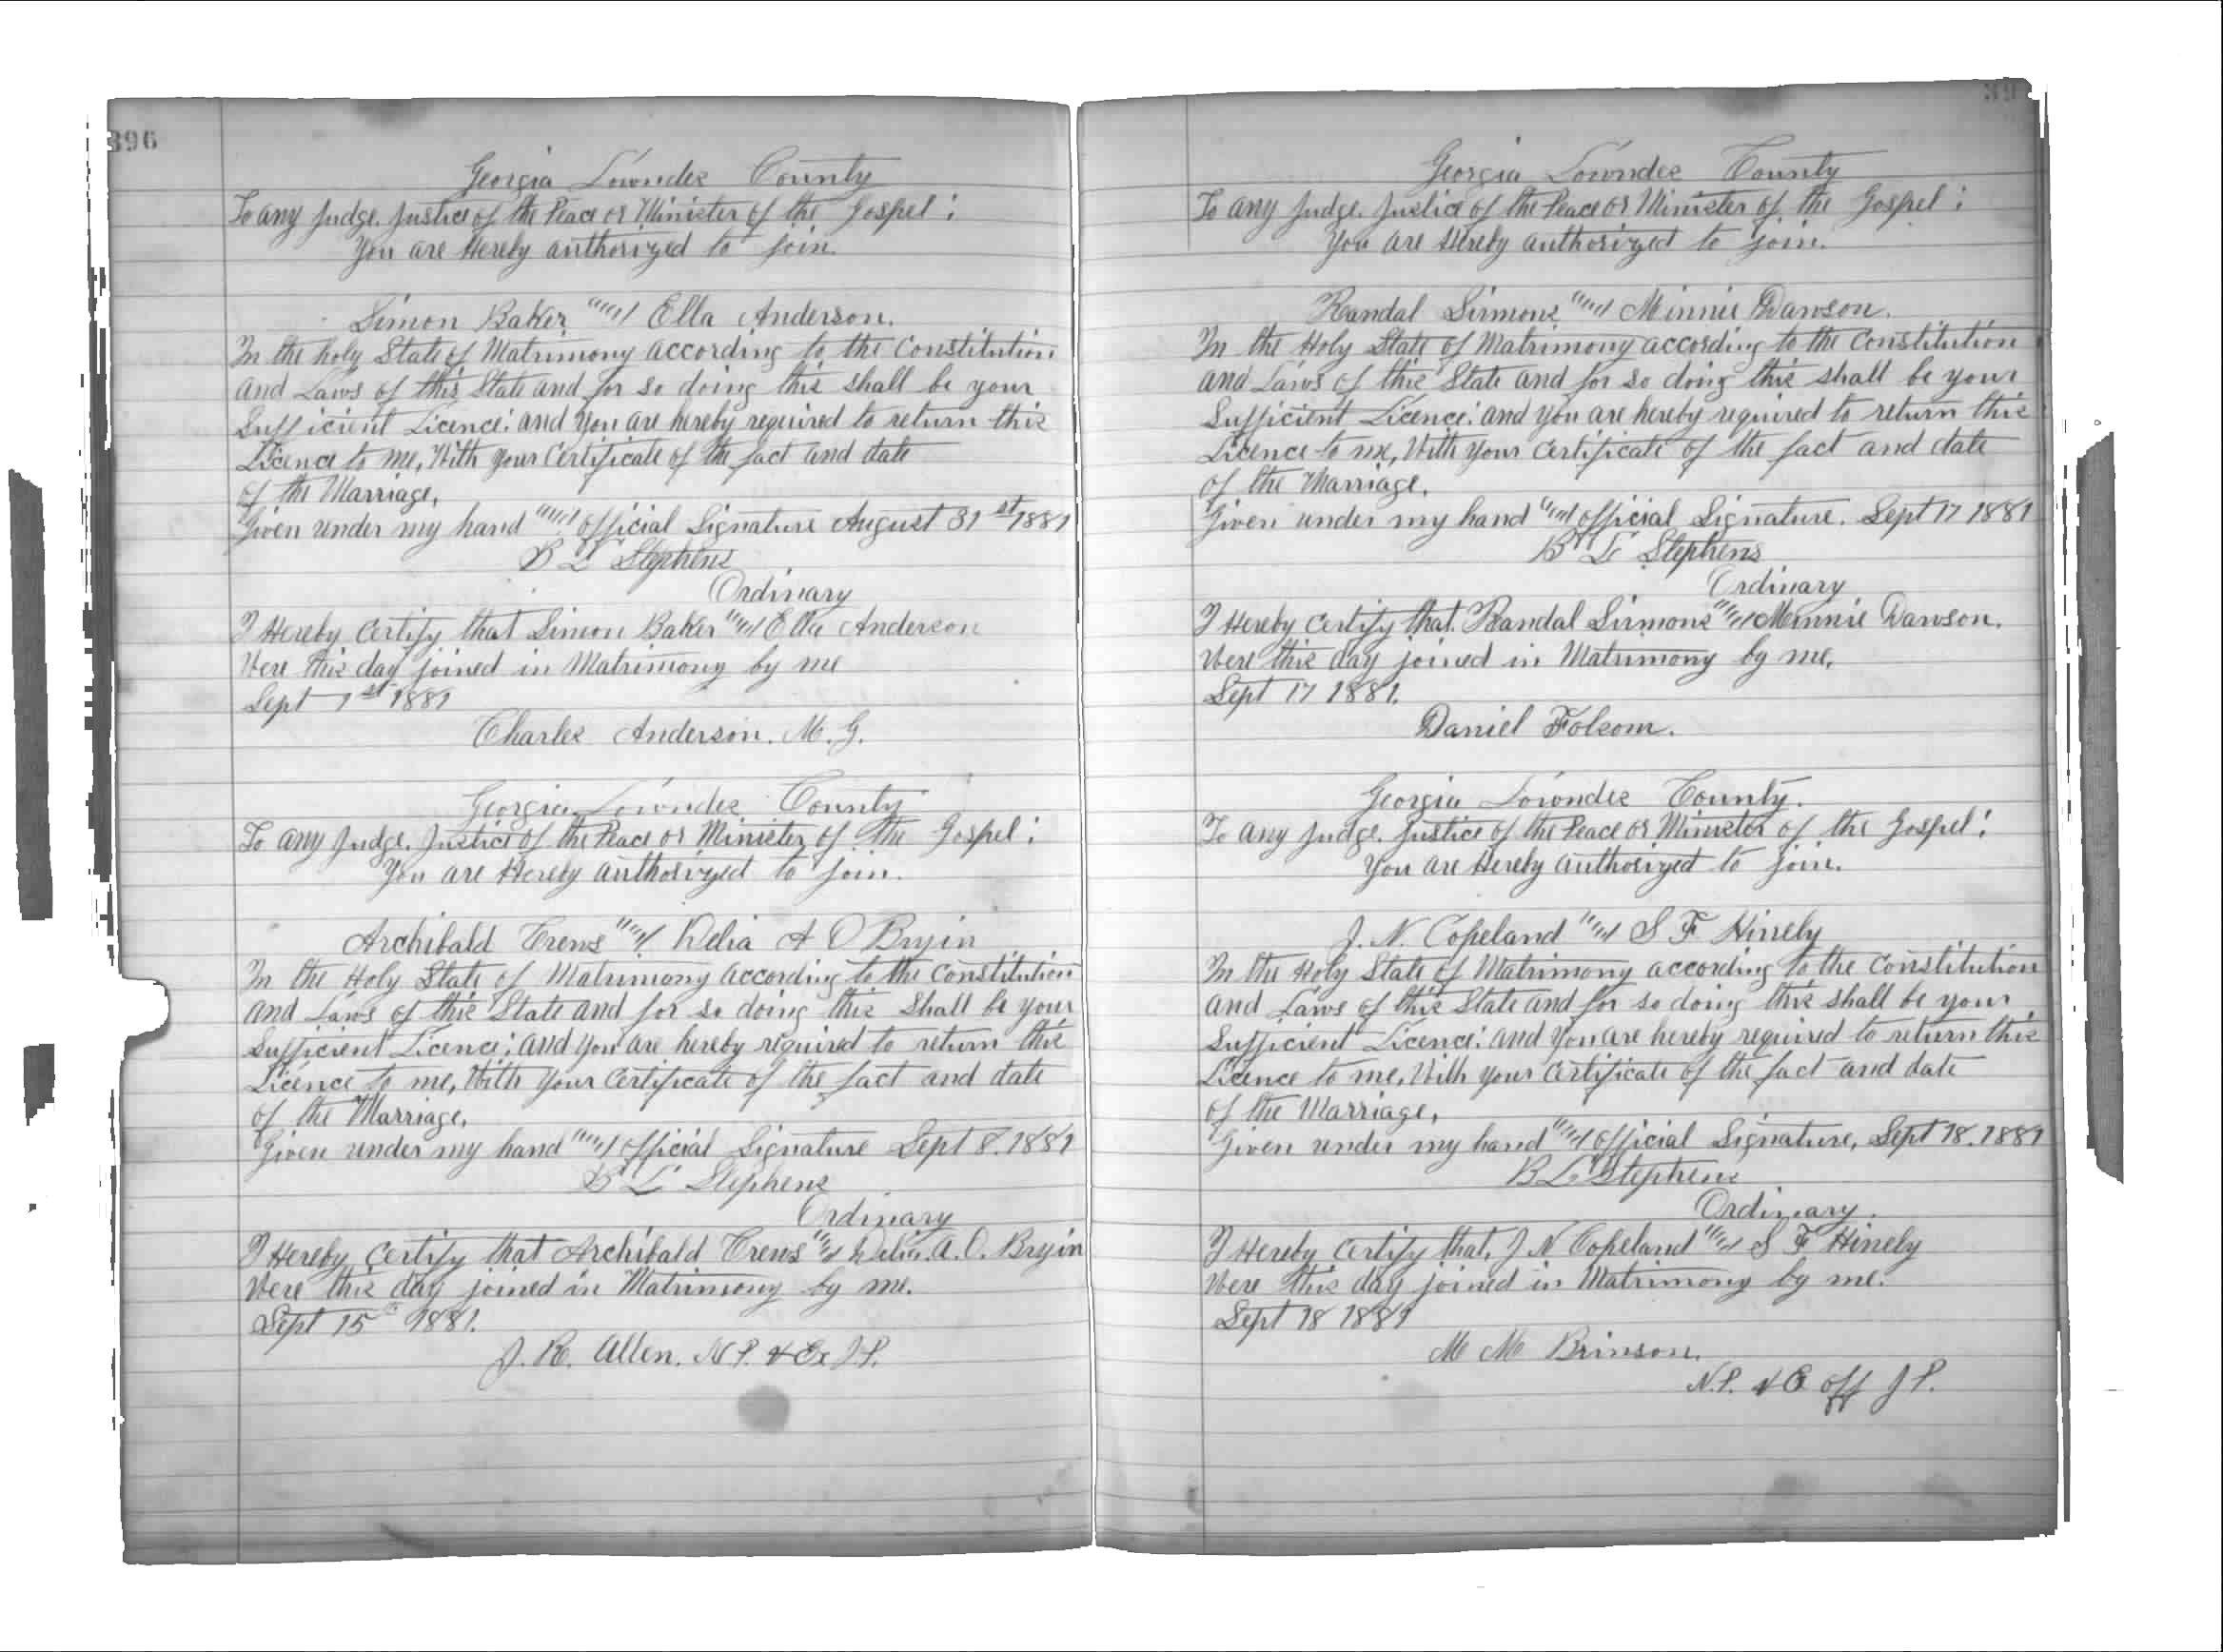 396
Georgia Lowndes County
To any Judge. Justice of the Peace or Minister of the Gospel:
You are Hereby authorized to join.
Simon Baker and Ella Anderson.
In the holy State of Matrimony according to the Constitution
and Laws of this State and for so doing this shall be your
Sufficient Licence: and you are hereby required to return this
Licence to me, With your Certificate of the fact and date
of the Marriage,
Given under my hand and official Signature August 31st 1881
B L Stephens
Ordinary
I Hereby Certify that Simon Baker and Ella Anderson
Were this day joined in Matrimony by me
Sept 1st 1881
Charles Anderson. M. G.
Georgia Lowndes County
To any Judge. Justice of the Peace or Minister of the Gospel:
You are Hereby authorized to join.
Archibald Crews and Delia A O Bryin
In the Holy State of Matrimony according to the Constitution
and Laws of this State and for so doing this Shall be your
Sufficient Licence: and you are hereby required to return this
Licence to me, With your Certificate of the fact and date
of the Marriage,
Given under my hand and official Signature Sept 8. 1881
B L Stephens
Ordinary
I Hereby Certify that Archibald Crews and Delia. A. O. Bryin
Were this day joined in Matrimony by me.
Sept 15th 1881.
J. R. Allen. N P. & Ex J P.
Georgia Lowndes County
To any Judge. Justice of the Peace or Minister of the Gospel:
You are Hereby authorized to join.
Randal Sirmons and Minnie Dawson.
In the Holy State of Matrimony according to the Constitution
and Laws of this State and for so doing this shall be your
Sufficient Licence: and you are hereby required to return this
Licence to me, With your Certificate of the fact and date
of the Marriage,
Given under my hand and official Signature. Sept 17 1881
B L Stephens
Ordinary
I Hereby Certify that. Randal Sirmons and Minnie Dawson.
Were this day joined in Matrimony by me,
Sept 17 1881.
Daniel Folsom.
Georgia Lowndes County.
To any Judge. Justice of the Peace or Minister of the Gospel:
You are Hereby authorized to join.
J. N. Copeland and S F Hinely
In the Holy State of Matrimony according to the Constitution
and Laws of this State and for so doing this shall be your
Sufficient Licence: and you are hereby required to return this
Licence to me, With your Certificate of the fact and date
of the Marriage,
Given under my hand and official Signature, Sept 18. 1881
B L Stephens
Ordinary.
I Hereby Certify that, J N Copeland and S F Hinely
Were this day joined in Matrimony by me.
Sept 18 1881
M M Brinson.
N. P. & E off J P.